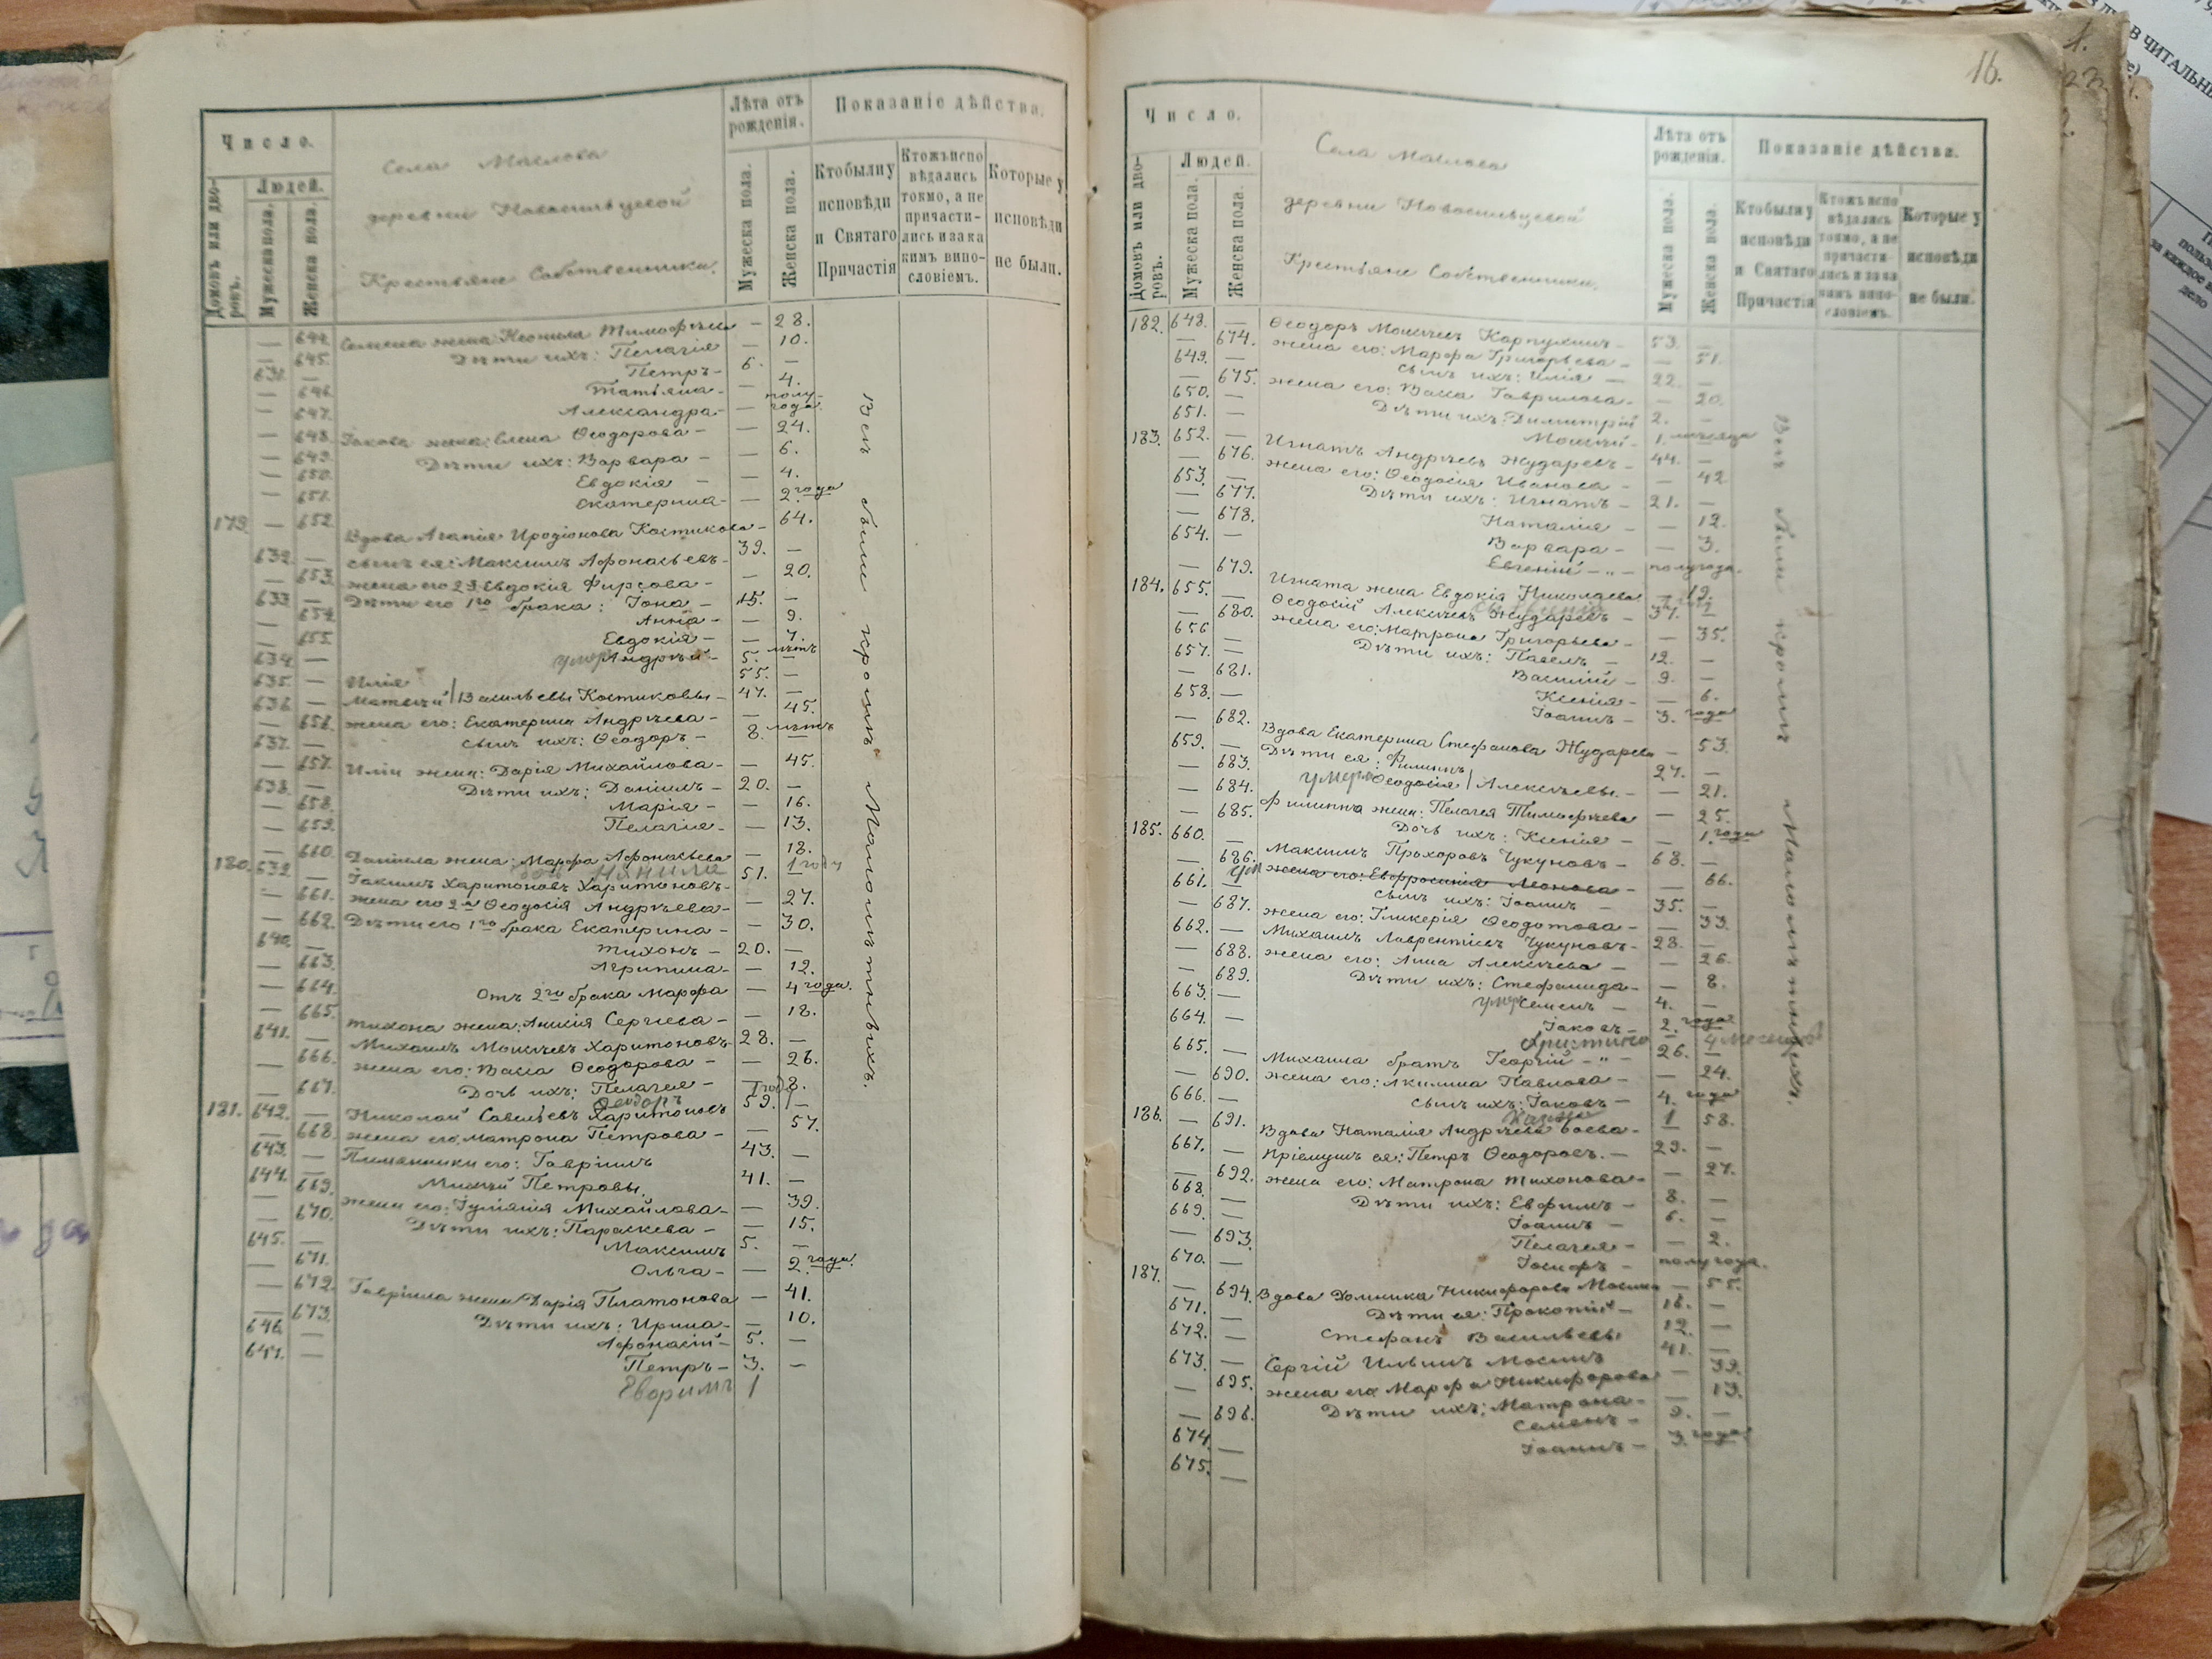 Число.
Домовъ или дворовъ.
Людей.
Мужеска пола.
Женска пола.
Села Маслова
деревни Новосильцевой
Крестьяне Собственники.
Лѣта отъ рожденія.
Мужеска пола.
Женска пола.
Показаніе дѣйства.
Кто были у исповѣди и Святаго Причастія
Ктожъ исповѣдались токмо, а не причастились и за какимъ винословіемъ.
Которые у исповѣди не были.
— 644. Семена жена: Неонила Тимофеева — 28.
— 645. Дѣти ихъ: Пелагія — 10.
631. — Петръ — 6. —
— 646. Татьяна — — 4.
— 647. Александра — — полугода.
— 648. Іакова жена: Елена Ѳеодорова — — 24.
— 649. Дѣти ихъ: Варвара — — 6.
— 650. Евдокія — — 4.
— 651. Екатерина — — 2 года
179. — 652. Вдова Агапія Иродіонова Костикова — 64.
632. — сынъ ея: Максимъ Афонасьевъ — 39. —
— 653. жена его 2я Евдокія Фирсова — — 20.
633. — Дѣти его 1го брака: Іона — 15. —
— 654. Анна — — 9.
— 655. Евдокія — — 7.
634. — умер Андрей — 5. лѣтъ —
635. — Илія 55. —
636. — Матвѣй Васильевы Костиковы — 47. —
— 656. жена его: Екатерина Андреева — — 45.
637. — сынъ ихъ: Ѳеодоръ — 8. лѣтъ —
— 657. Иліи жена: Дарія Михайлова — — 45.
638. — Дѣти ихъ: Даніилъ — 20. —
— 658. Марія — — 16.
— 659. Пелагія — — 13.
— 660. Даніила жена: Марфа Афонасьева — 18.
1 году
180. 639. — Іакимъ Харитоновъ Харитоновъ — 51. —
— 661. жена его 2я Ѳеодосія Андреева — — 27.
— 662. Дѣти его 1го брака Екатерина — — 30.
640. — Тихонъ — 20. —
— 663. Агрипина — — 12.
— 664. Отъ 2го брака Марфа — 4 года.
— 665. Тихона жена: Анисія Сергіева — — 18.
641. — Михаилъ Моисеевъ Харитоновъ — 28. —
— 666. жена его: Васса Ѳеодорова — — 26.
— 667. Дочь ихъ: Пелагея — — 8.
Ѳеодоръ 1 год
181. 642. — Николай Савельевъ Харитоновъ 59. —
— 668. жена его: Матрона Петрова — — 57.
643. — Племянники его: Гавріилъ 43. —
644. — Михей Петровы. 41. —
— 669. жена его: Іуліанія Михайлова — — 39.
— 670. Дѣти ихъ: Параскева — — 15.
645. — Максимъ 5. —
— 671. Ольга — — 2 года.
— 672. Гавріила жена Дарія Платонова — 41.
— 673. Дѣти ихъ: Ирина — — 10.
646. — Афонасій — 5. —
647. — Петръ — 3. —
Ефримъ 1
Всѣ были кромѣ малолѣтныхъ.
16.
Число.
Домовъ или дворовъ.
Людей.
Мужеска пола.
Женска пола.
Села Маслова
деревни Новосильцевой
Крестьяне Собственники.
Лѣта отъ рожденія.
Мужеска пола.
Женска пола.
Показаніе дѣйства.
Кто были у исповѣди и Святаго Причастія
Ктожъ исповѣдались токмо, а не причастились и за какимъ винословіемъ.
Которые у исповѣди не были.
182. 648. — Ѳеодоръ Моисеевъ Карпухинъ — 53. —
— 674. жена его: Марфа Григорьева — — 51.
649. — сынъ ихъ: Илія — 22. —
— 675. жена его: Васса Гаврилова — — 20.
650. — Дѣти ихъ: Димитрій 2. —
651. — Моисей — 1. месяца
183. 652. — Игнатъ Андреевъ Жударевъ — 44. —
— 676. жена его: Ѳеодосія Иванова — — 42
653. — Дѣти ихъ: Игнатъ — 21. —
— 677. Наталія — — 12.
— 678. Варвара — — 3.
654. — Евгеній — „ — полугода.
— 679. Игната жена Евдокія Николаева — 19.
184. 655. — Ѳеодосій Алексеевъ Жударевъ — 37. —
— 680. жена его: Матрона Григорьева — — 35.
656 — Дѣти ихъ: Павелъ — 12. —
657. — Василій — 9. —
— 681. Ксенія — — 6.
658. — Іоаннъ — 3. года
— 682. Вдова Екатерина Стефанова Жударева — 53.
659. — Дѣти ея: Филиппъ 27. —
— 683. умерла Ѳеодосія Алексеевы. — — 21.
— 684. Филиппа жена: Пелагея Тимофеева — 25.
— 685. Дочь ихъ: Ксенія — — 1. года
185. 660. — Максимъ Прохоровъ Чукуновъ — 68. —
— 686. ум жена его: Евфросинія Леонова — — 66.
661. — сынъ ихъ: Іоаннъ — 35. —
— 687. жена его: Гликерія Ѳеодотова — — 33.
662. — Михаилъ Лаврентіевъ Чукуновъ — 28. —
— 688. жена его: Анна Алексеева — — 26.
— 689. Дѣти ихъ: Стефанида — — 8.
663. — умер Семенъ — 4. —
664. — Іаковъ — 2. года
Христина 4 месяцев
665. — Михаила братъ Георгій — „ — 26. —
— 690. жена его: Акилина Павлова — — 24.
666. — сынъ ихъ: Іаковъ — 4. года
1
186. — 691. Вдова Наталія Андреева Боева — — 58.
667. — Пріемышъ ея: Петръ Ѳеодоровъ. — 29. —
— 692. жена его: Матрона Тихонова — — 27.
668. — Дѣти ихъ: Евфимъ — 8. —
669. — Іоаннъ — 6. —
— 693. Пелагея — — 2.
670. — Іосифъ — полугода.
187. — 694. Вдова Домника Никифорова Мосина — 55.
671. — Дѣти ея: Прокопій — 16. —
672. — Стефанъ Васильевы 12. —
673. — Сергій Ильинъ Мосинъ 41. —
— 695. жена его Марфа Никифорова — 39.
— 696. Дѣти ихъ: Матрона — — 13.
674. — Семенъ — 9. —
675. — Іоаннъ — 3. года
Всѣ были кромѣ малолѣтныхъ.